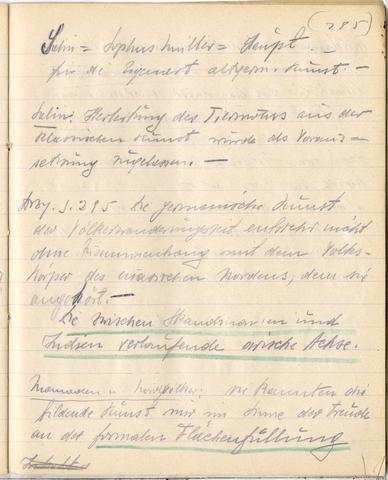 (285)
Salin = Sophus Müller = Haupt
für die Eigenart altgerm. Kunst. —
Salin: Herleitung des Tiermotivs aus der
klassischen Kunst würde als Voraus=
setzung zugelassen. —
Strzy. S. 295 Die germanische Kunst
der Völkerwanderungszeit entsteht nicht
ohne Zusammenhang mit dem Volks-
körper des asiatischen Nordens, dem sie
angehört. —
Die zwischen Skandinavien und
Indien verlaufende arische Achse.
Nomaden u. Nordvölker: sie kannten die
bildende Kunst nur im Sinne der Freude
an der formalen Flächenfüllung